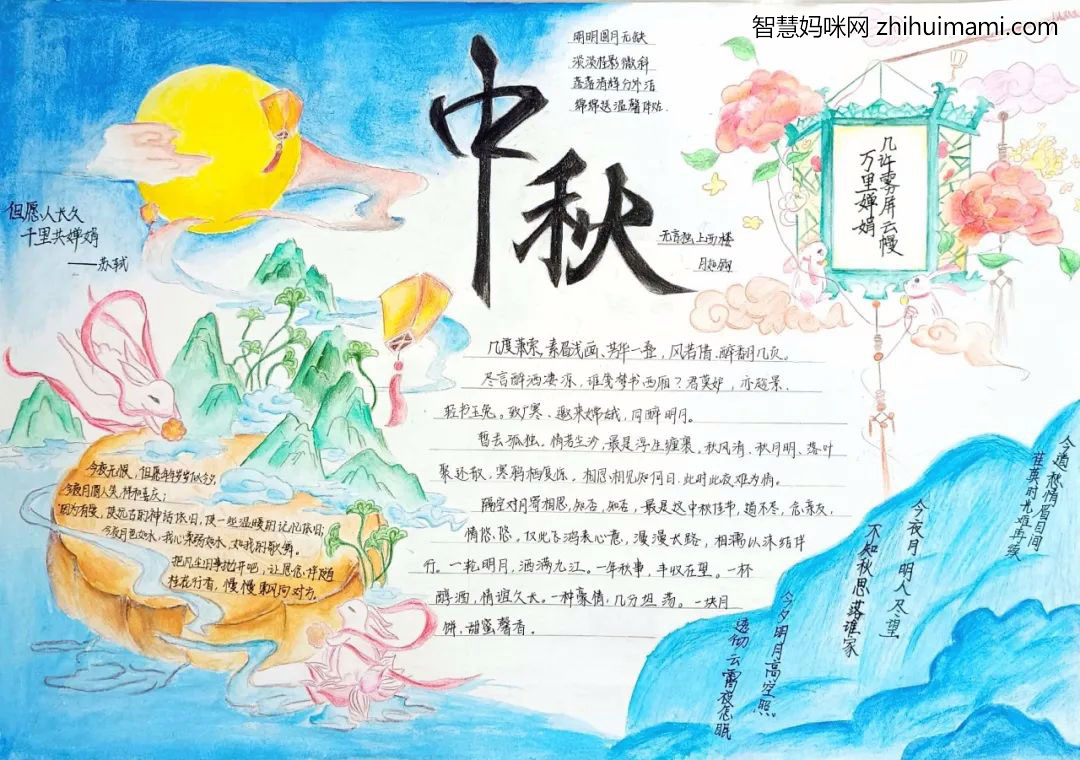 智慧妈咪网 zhihuimami.com
中秋
明明圆月无缺
淡淡桂影微斜
落落清辉分外洁
绵绵送温馨
几许雾屏云幔
万里婵娟
但愿人长久
千里共婵娟
——苏轼
无言独上西楼
月如钩
几度萧索,素眉浅画、芳华一叠,风若情、醉翻几页。
尽言醉洒凄凉,谁笺梦书西厢?君莫妒,亦起景、
轻书玉兔。致广寒、邀来嫦娥,同醉明月。
暂去孤独。情若尘沙,最是浮生缠裹。秋风清、秋月明、落叶
聚还散,寒鸦栖复惊,相思相见知何日、此时此夜难为情。
隔空对月寄相思,知否,知否,最是这中秋佳节,道不尽,念亲友、
情悠、悠,仅此飞鸿表心意,漫漫长路,相濡以沫结伴
行。一轮明月,洒满九江。一年秋事,丰收在望。一杯
醇酒,情谊久长。一种豪情,几分坦荡。一块月
饼,甜蜜馨香。
今夜无恨,但愿年年岁岁似今夕
今夜月圆人笑,祥和喜庆;
因为有爱,使远古的神话依旧,使一些温暖的记忆依旧;
今夜月色如水,我心柔弱如水,如我的歌舞。
把凡尘旧事抛开吧,让思念伴随
桂花行者,慢慢乘风向对方。
今夕明月高空照
透彻云霄夜怎眠
今夜月明人尽望
不知秋思落谁家
今道愁情眉目间
茬莫时光难再续